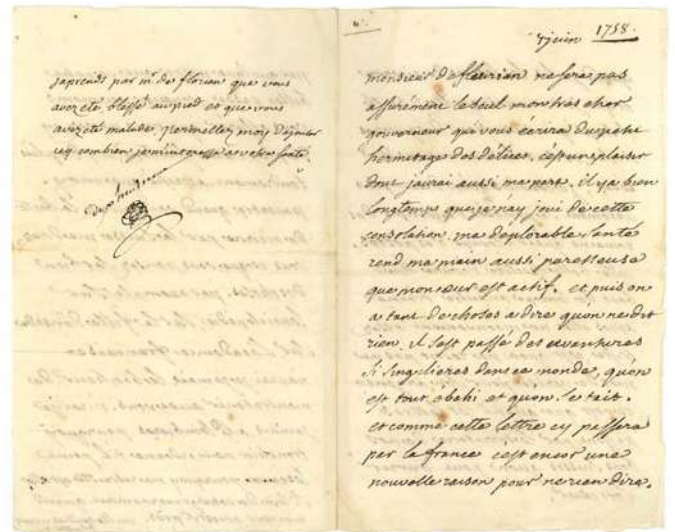 japrends par mr de florian que vous
avez eté blessé au pied et que vous
avez eté malade. permettez moy dajouter
icy combien je minteresse a votre santé.
juin 1758.
monsieur de fleurian ne sera pas
assurément le seul mon tres cher
gouverneur qui vous écrira du petit
hermitage des délices. c'est un plaisir
dont jaurai aussi ma part. il y a bien
longtemps que je nay joui de cette
consolation. ma deplorable santé
rend ma main aussi paresseuse
que mon coeur est actif. et puis on
a tant de choses a dire qu'on ne dit
rien. il s'est passé des avantures
si singulieres dans ce monde, qu'on
est tout ébahi et qu'on se tait.
et comme cette lettre cy passera
par la france c'est encor une
nouvelle raison pour ne rien dire.